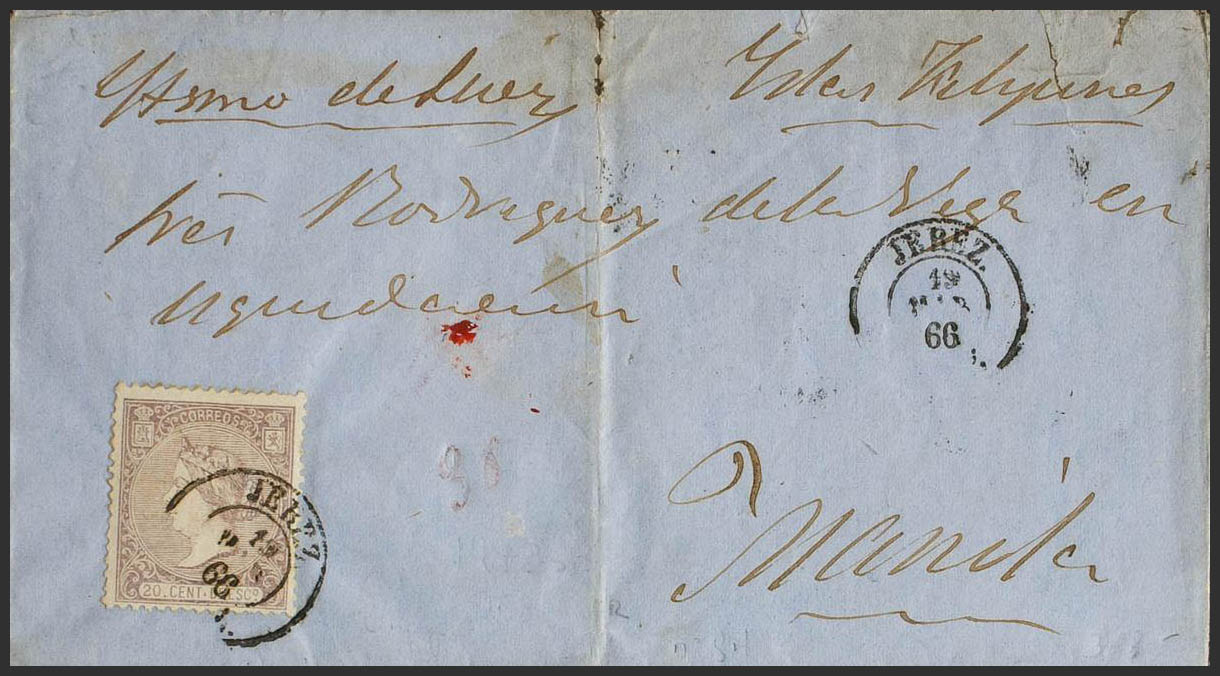 Ytsmo de Suez
Yslas Filipinas
Sres Rodriguez de la Vega en
liquidacion
JEREZ.
19
MAR
66
CORREOS
20. CENT. D ESCo
JEREZ
19
66
Manila